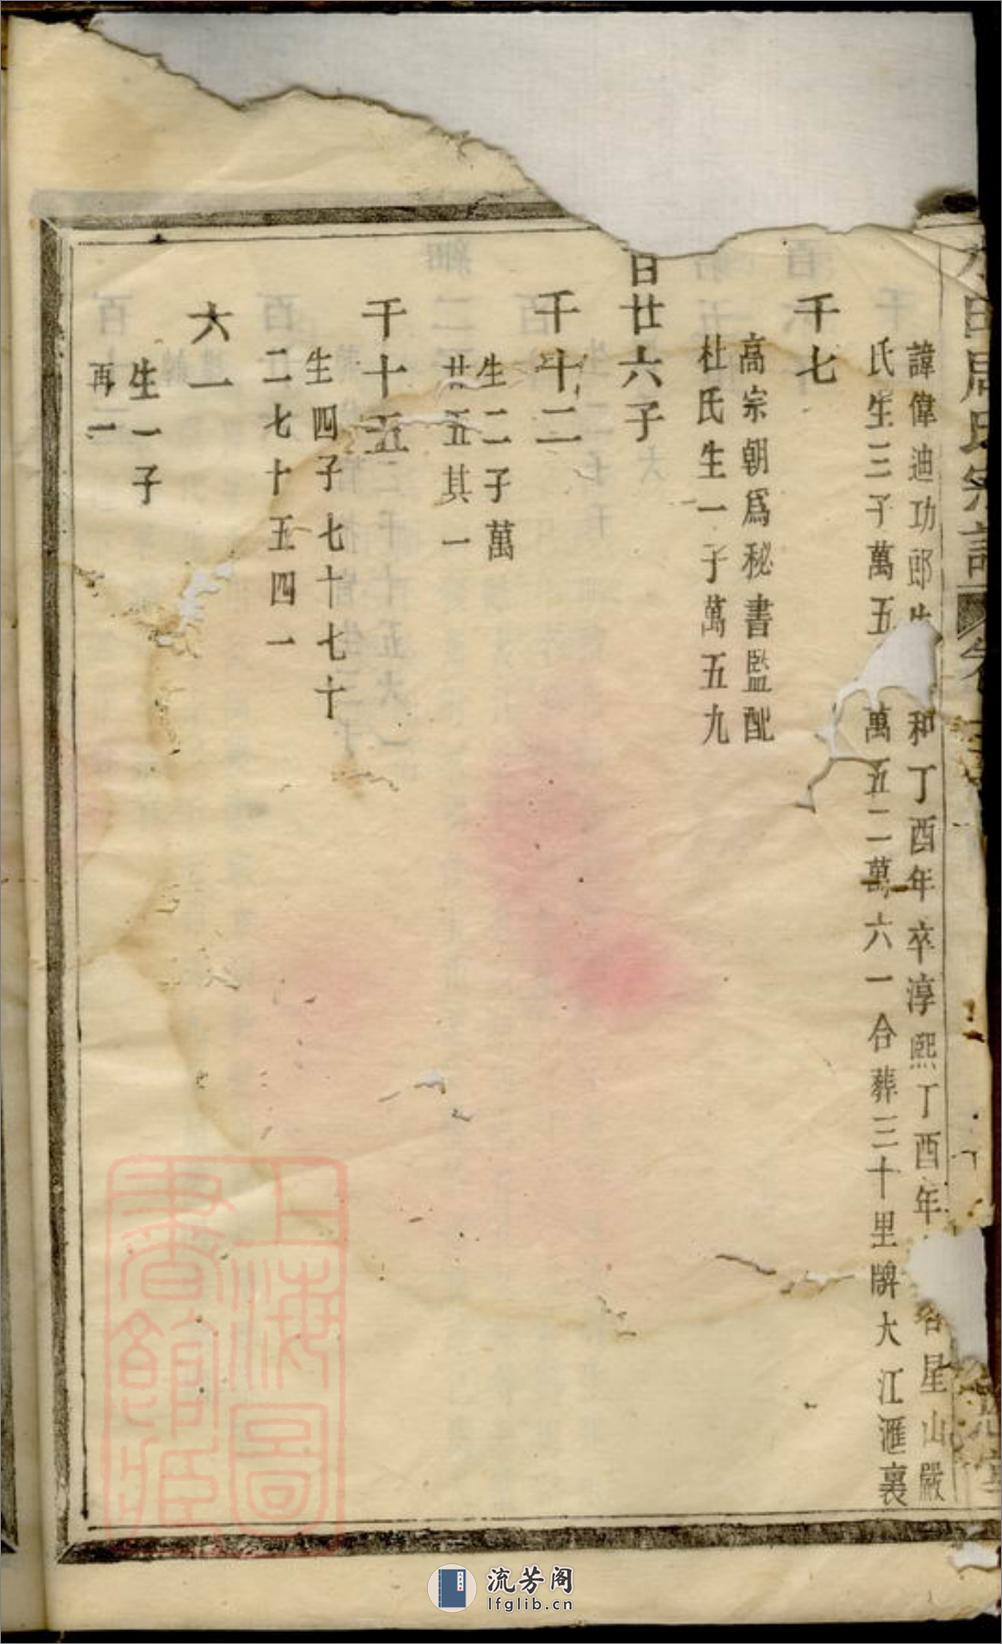 周氏宗譜
諱偉迪功郎生和丁酉年卒淳熙丁酉年星山嚴
氏生三子萬五萬五二萬六一合葬三十里牌大江滙裏
千七
高宗朝爲秘書監配
杜氏生一子萬五九
百廿六子
千十二
生二子萬
廿五其一
千十五
生四子七十七十
二七十五四一
六一
生一子
再一
上海圖書館藏
流芳阁
lfglib.cn